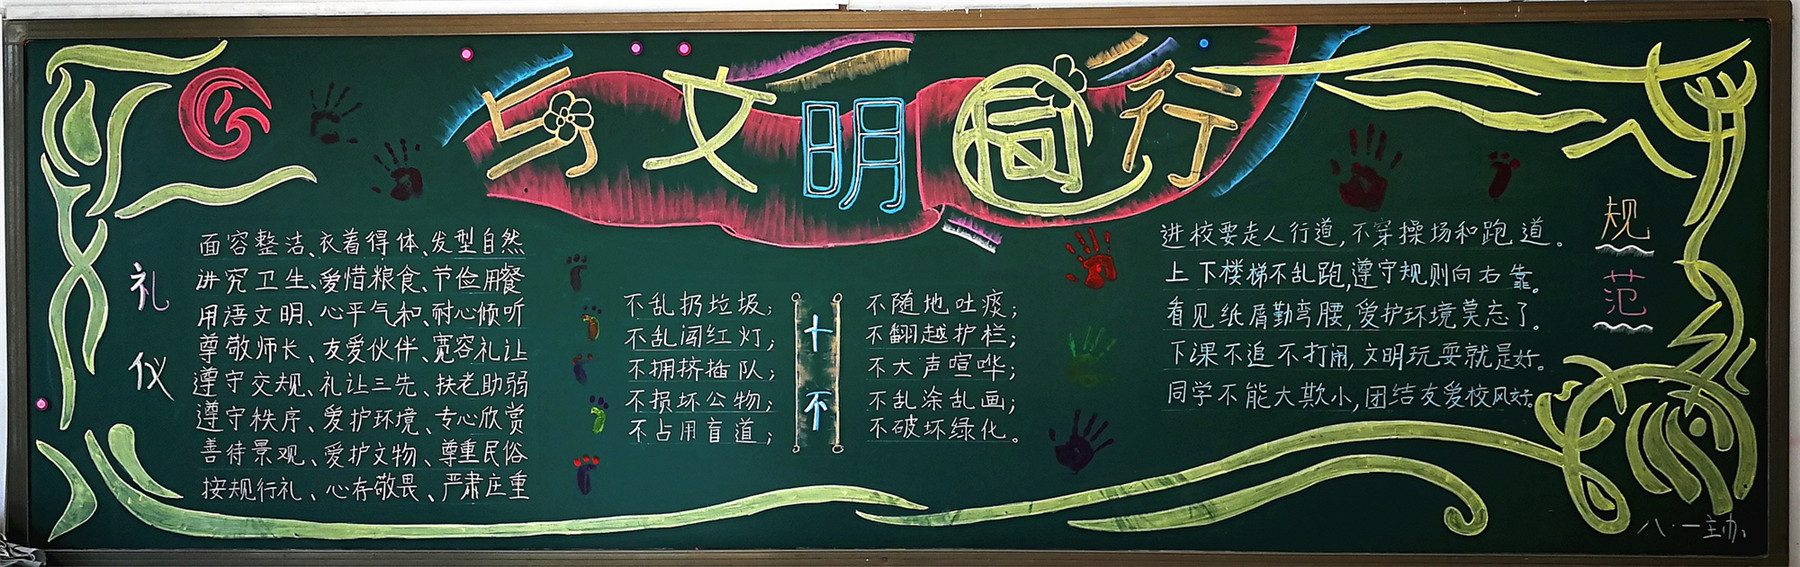 与文明同行
礼仪
面容整洁、衣着得体、发型自然
讲究卫生、爱惜粮食、节俭用餐
用语文明、心平气和、耐心倾听
尊敬师长、友爱伙伴、宽容礼让
遵守交规、礼让三先、扶老助弱
遵守秩序、爱护环境、专心欣赏
善待景观、爱护文物、尊重民俗
按规行礼、心存敬畏、严肃庄重
不乱扔垃圾;
不乱闯红灯;
不拥挤插队;
不损坏公物;
不占用盲道;
十不
不随地吐痰;
不翻越护栏;
不大声喧哗;
不乱涂乱画;
不破坏绿化。
进校要走人行道,不穿操场和跑道。
上下楼梯不乱跑,遵守规则向右靠。
看见纸屑勤弯腰,爱护环境莫忘了。
下课不追不打闹,文明玩耍就是好。
同学不能大欺小,团结友爱校风好。
规范
八·一主办